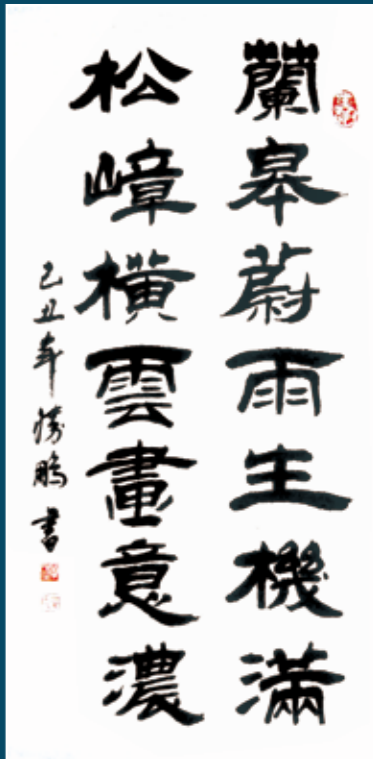 蘭皋蔚雨生機滿
松嶂橫雲畫意濃
己丑年勝鵬書